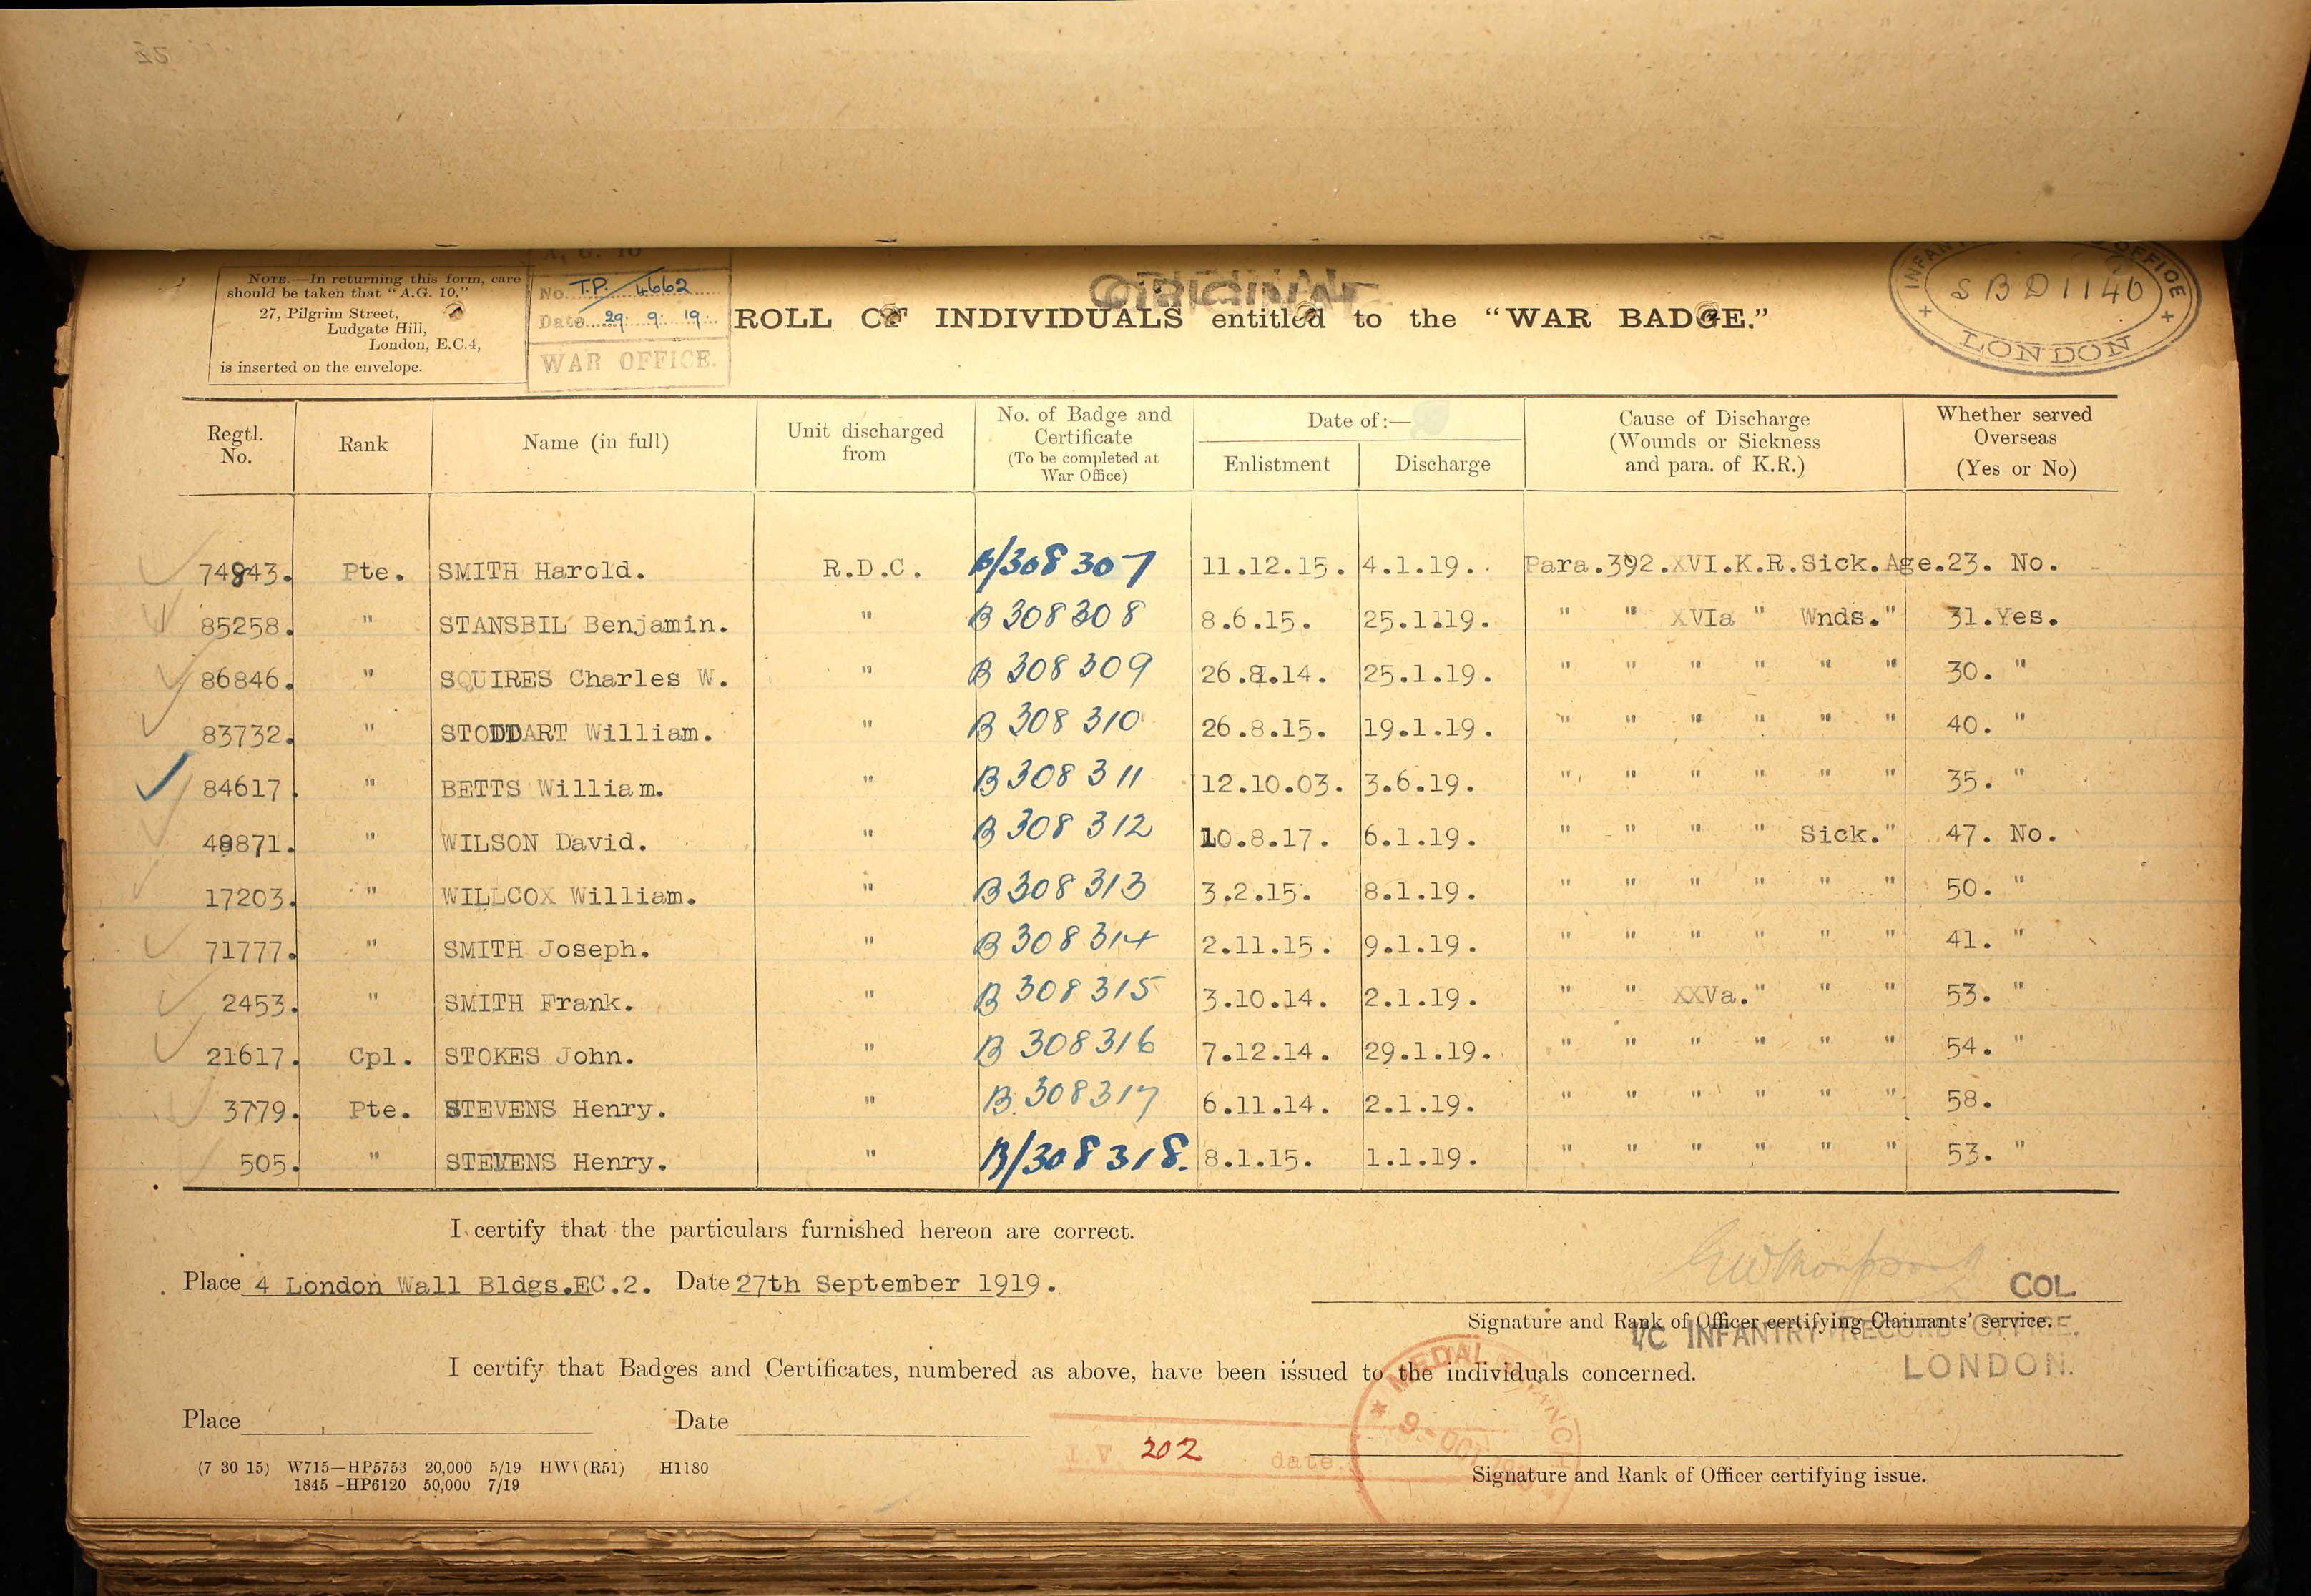 NOTE.—In returning this form, care
should be taken that "A.G. 10."
27, Pilgrim Street,
Ludgate Hill,
London, E.C.4,
is inserted on the envelope.
A. G. 10
No. T.P. 4662
Date 29. 9. 19.
WAR OFFICE.
ORIGINAL
ROLL OF INDIVIDUALS entitled to the "WAR BADGE."
INFANTRY OFFICE
SBD1140
LONDON
Regtl. No. Rank Name (in full) Unit discharged from No. of Badge and Certificate (To be completed at War Office) Date of:— Enlistment Discharge Cause of Discharge (Wounds or Sickness and para. of K.R.) Whether served Overseas (Yes or No)
74843. Pte. SMITH Harold. R.D.C. B/308307 11.12.15. 4.1.19. Para.392.XVI.K.R.Sick.Age.23. No.
85258. " STANSBIL Benjamin. " B 308308 8.6.15. 25.1.19. " " XVIa " Wnds." 31.Yes.
86846. " SQUIRES Charles W. " B 308309 26.8.14. 25.1.19. " " " " " " 30. "
83732. " STODDART William. " B 308310 26.8.15. 19.1.19. " " " " " " 40. "
84617. " BETTS William. " B 308311 12.10.03. 3.6.19. " " " " " " 35. "
49871. " WILSON David. " B 308312 10.8.17. 6.1.19. " " " " Sick." 47. No.
17203. " WILLCOX William. " B 308313 3.2.15. 8.1.19. " " " " " " 50. "
71777. " SMITH Joseph. " B 308314 2.11.15. 9.1.19. " " " " " " 41. "
2453. " SMITH Frank. " B 308315 3.10.14. 2.1.19. " " XXVa." " " 53. "
21617. Cpl. STOKES John. " B 308316 7.12.14. 29.1.19. " " " " " " 54. "
3779. Pte. STEVENS Henry. " B. 308317 6.11.14. 2.1.19. " " " " " " 58.
505. " STEVENS Henry. " B/308318. 8.1.15. 1.1.19. " " " " " " 53. "
I certify that the particulars furnished hereon are correct.
Place 4 London Wall Bldgs.EC.2. Date 27th September 1919.
COL.
Signature and Rank of Officer certifying Claimants' service.
I/C INFANTRY RECORD OFFICE,
LONDON.
I certify that Badges and Certificates, numbered as above, have been issued to the individuals concerned.
MEDAL BRANCH
9-OCT
Place Date
I.V. 202 date
Signature and Rank of Officer certifying issue.
(7 30 15) W715—HP5753 20,000 5/19 HWV(R51) H1180
1845 -HP6120 50,000 7/19